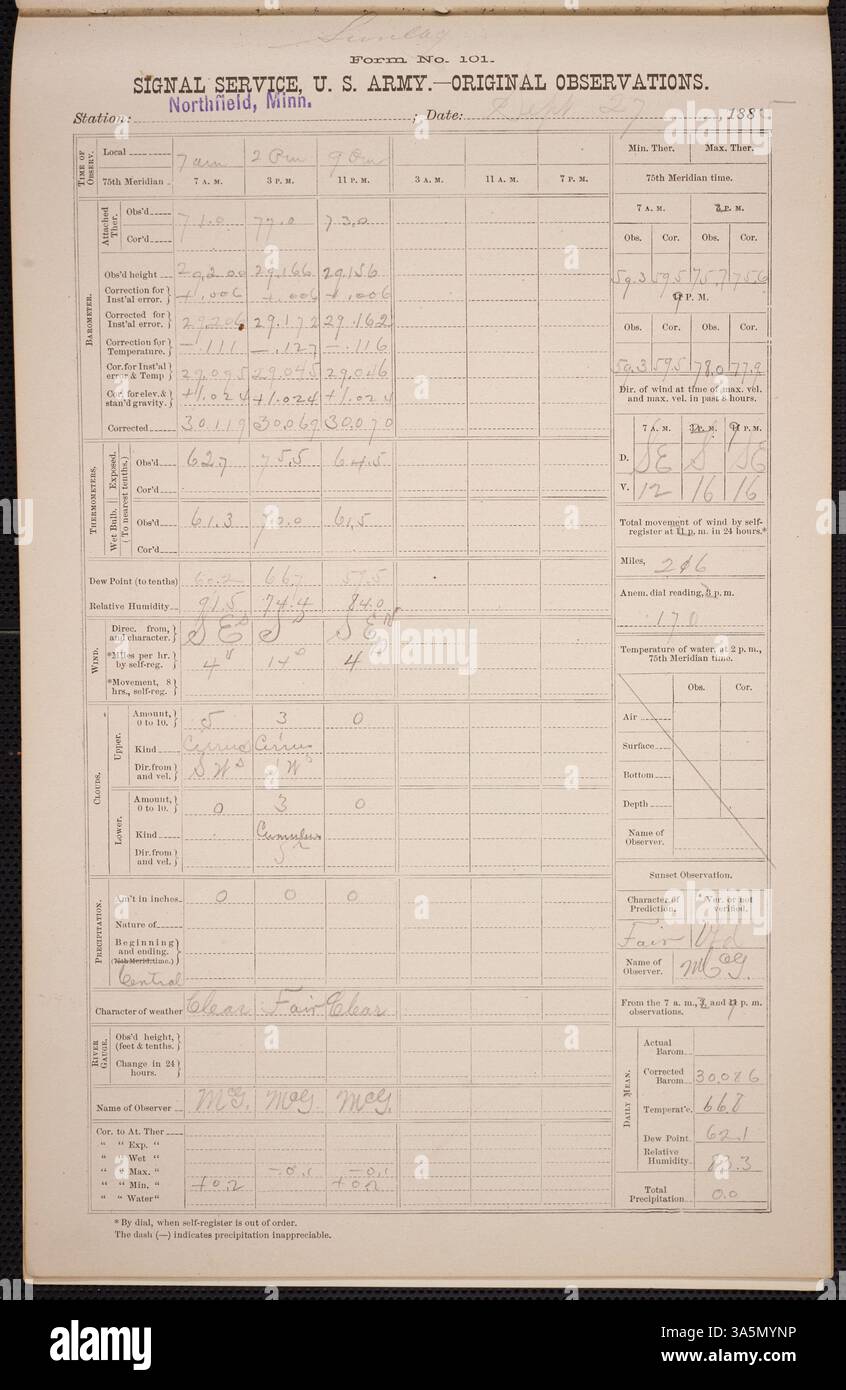 Sunday
Form No. 101.
SIGNAL SERVICE, U. S. ARMY.—ORIGINAL OBSERVATIONS.
Station: Northfield, Minn. ; Date: Sept 27, 1885
TIME OF OBSERV.
Local 7 am 2 Pm 9 Pm
75th Meridian 7 A. M. 3 P. M. 11 P. M. 3 A. M. 11 A. M. 7 P. M.
BAROMETER.
Attached Ther.
Obs'd 71.0 77.0 73.0
Cor'd
Obs'd height 29.200 29.166 29.156
Correction for Inst'al error. +.006 +.006 +.006
Corrected for Inst'al error. 29.206 29.172 29.162
Correction for Temperature. -.111 -.127 -.116
Cor. for Inst'al error & Temp 29.095 29.045 29.046
Cor. for elev. & stan'd gravity. +1.024 +1.024 +1.024
Corrected 30.119 30.069 30.070
THERMOMETERS.
Exposed. (To nearest tenths.)
Obs'd 62.7 75.5 64.5
Cor'd
Wet Bulb.
Obs'd 61.3 70.0 61.5
Cor'd
Dew Point (to tenths) 60.2 66.7 59.5
Relative Humidity 91.5 74.4 84.0
WIND.
Direc. from, and character. SE S SE
*Miles per hr. by self-reg. 4 14 4
*Movement, 8 hrs., self-reg.
CLOUDS.
Upper.
Amount, 0 to 10. 5 3 0
Kind Cirrus Cirrus
Dir. from and vel. SW W
Lower.
Amount, 0 to 10. 0 3 0
Kind Cumulus
Dir. from and vel. S
PRECIPITATION.
Am't in inches 0 0 0
Nature of
Beginning and ending. (75th Merid. time.)
Central
Character of weather Clear Fair Clear
RIVER GAUGE.
Obs'd height, (feet & tenths.
Change in 24 hours.
Name of Observer McG. McG McG.
Cor. to At. Ther
" " Exp. "
" " Wet "
" " Max. " -0.1 -0.1
" " Min. " +0.2 +0.2
" " Water"
* By dial, when self-register is out of order.
The dash (—) indicates precipitation inappreciable.
Min. Ther. Max. Ther.
75th Meridian time.
7 A. M. 3 P. M.
Obs. Cor. Obs. Cor.
59.3 59.5 75.7 75.6
9 P. M.
Obs. Cor. Obs. Cor.
59.3 59.5 78.0 77.9
Dir. of wind at time of max. vel. and max. vel. in past 8 hours.
7 A. M. 3 P. M. 11 P. M.
D. SE S SE
V. 12 16 16
Total movement of wind by self-register at 11 p. m. in 24 hours.*
Miles, 206
Anem. dial reading, 3 p. m.
170
Temperature of water, at 2 p. m., 75th Meridian time.
Obs. Cor.
Air
Surface
Bottom
Depth
Name of Observer.
Sunset Observation.
Character of Prediction. * Ver. or not verified.
Fair Vfd
Name of Observer. McG.
From the 7 a. m., 3, and 11 p. m. observations.
DAILY MEAN.
Actual Barom.
Corrected Barom. 30.086
Temperat'e. 66.8
Dew Point 62.1
Relative Humidity 83.3
Total Precipitation 0.0
alamy
Image ID: 3A5MYNP
www.alamy.com